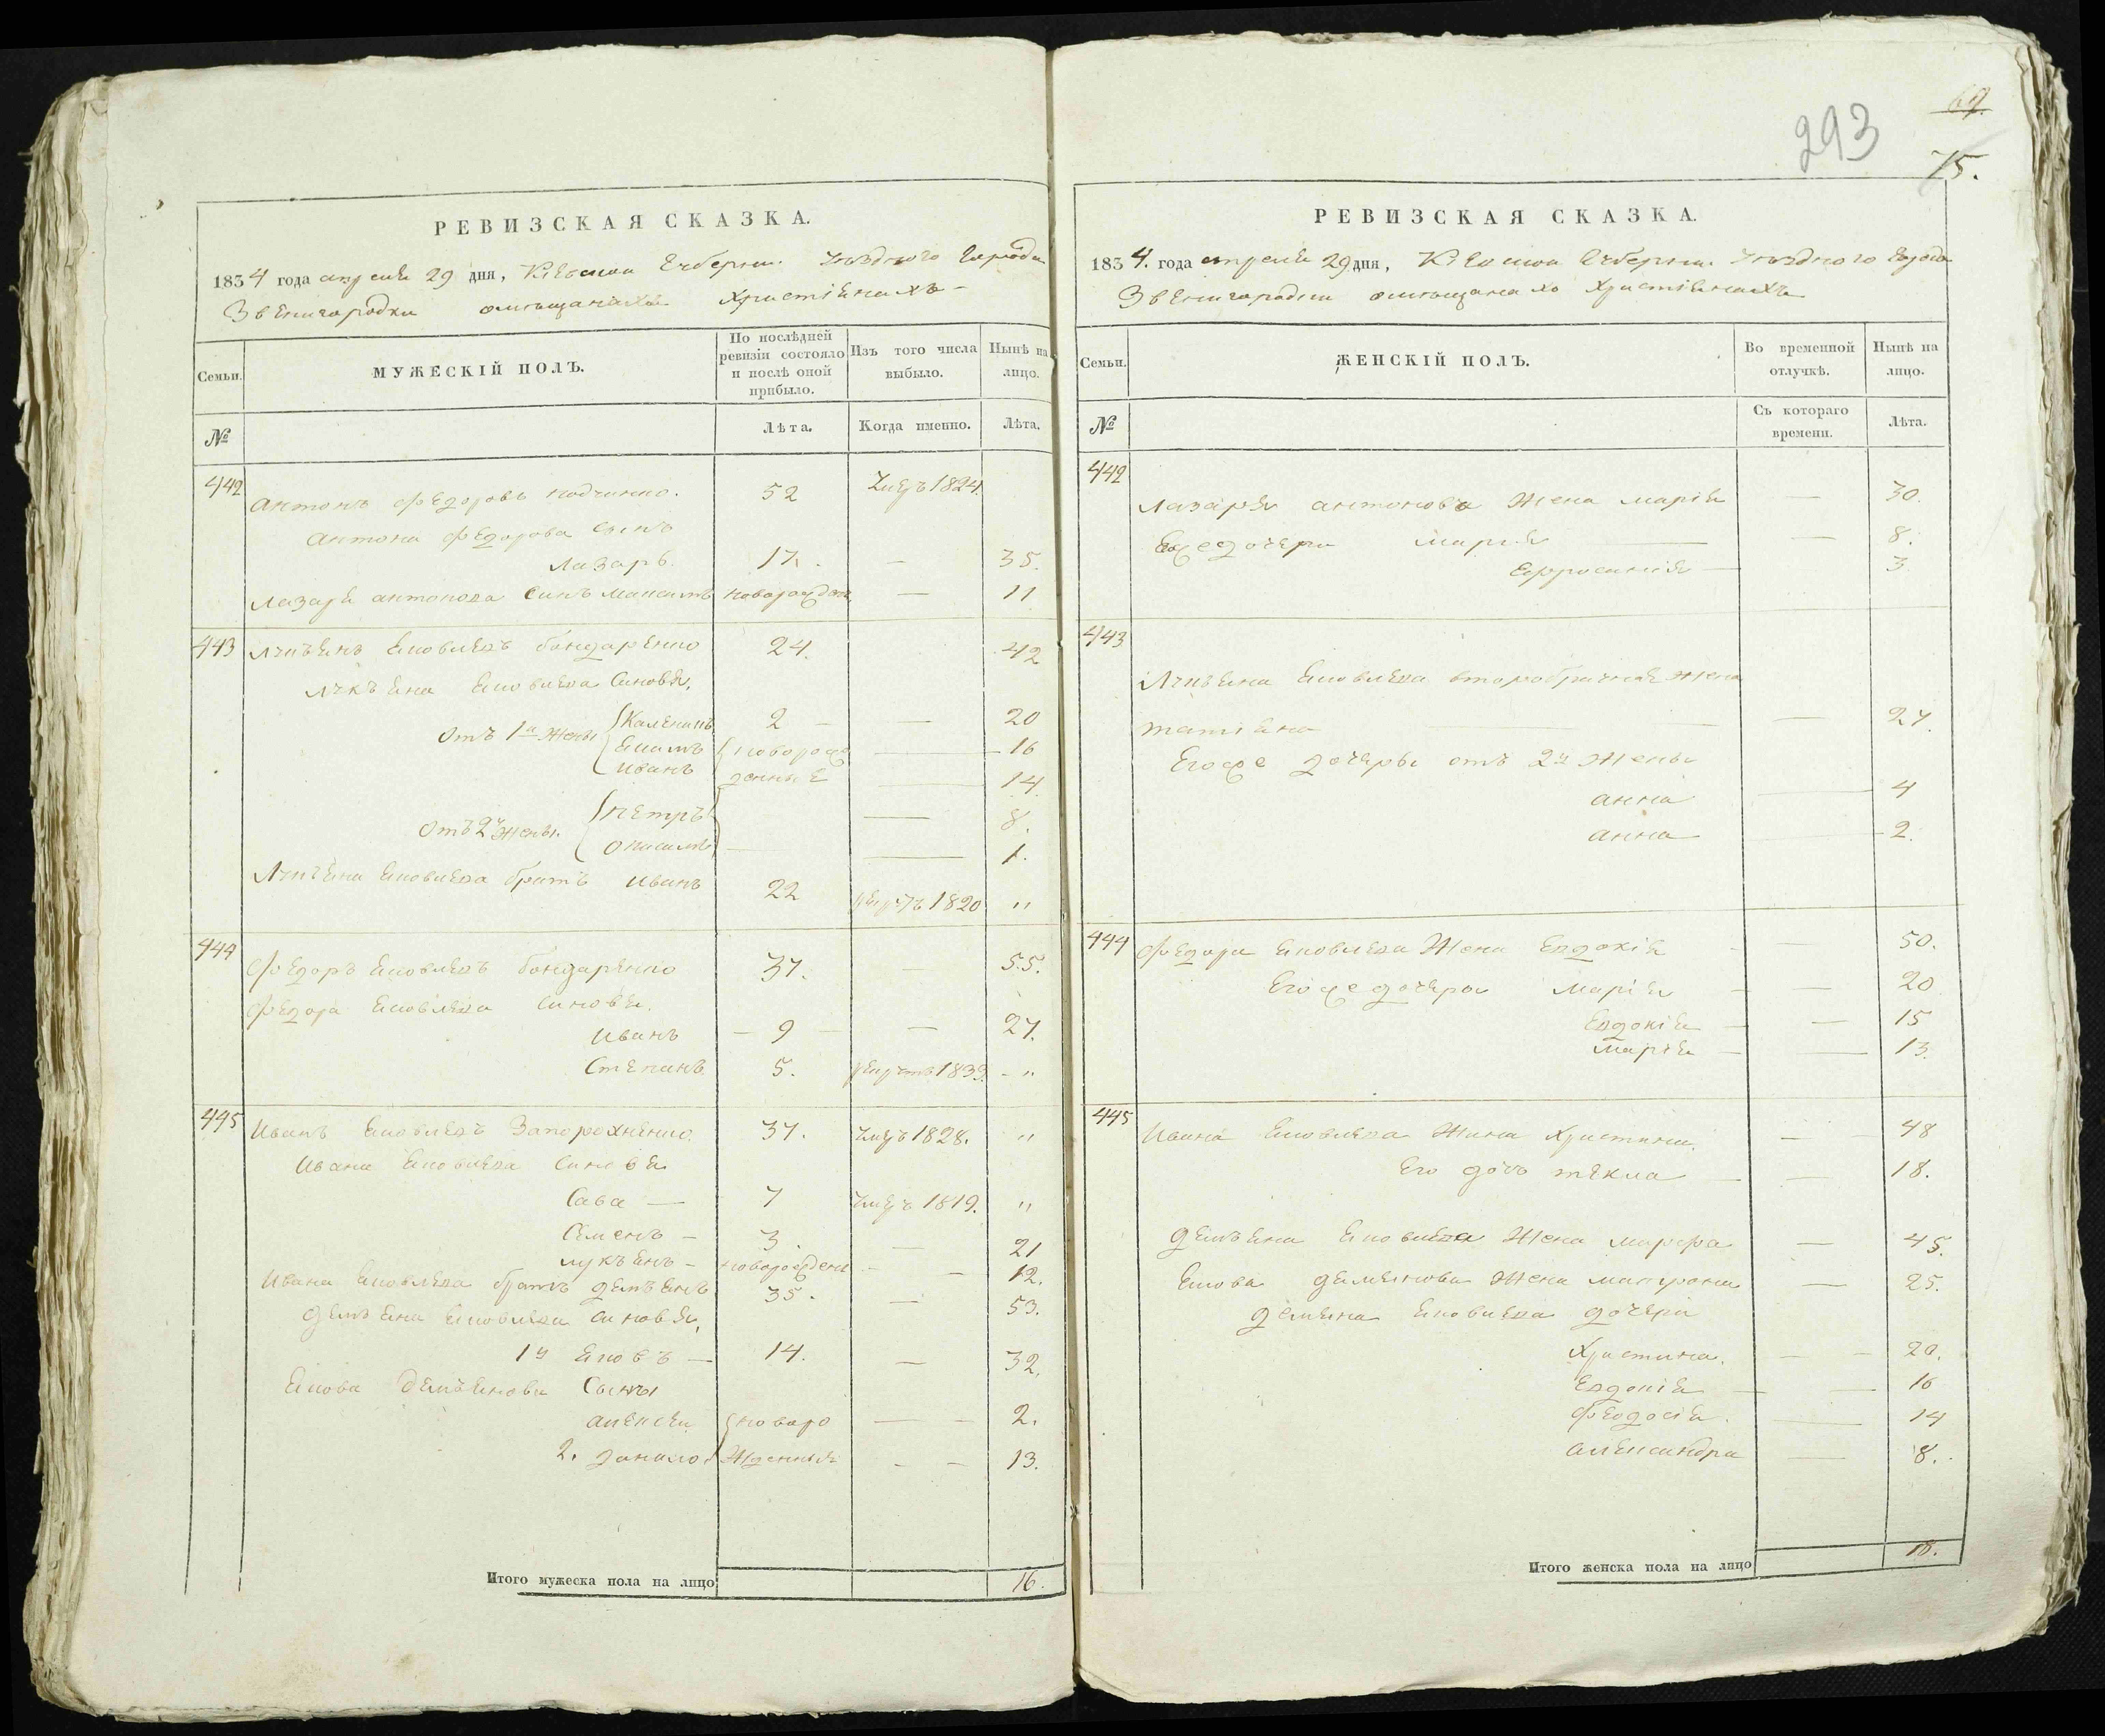 РЕВИЗСКАЯ СКАЗКА.
1834 года апреля 29 дня, Кіевской Губерніи Уѣзднаго города
Звенигородки омѣщанахъ христіянахъ
Семьи.
МУЖЕСКІЙ ПОЛЪ.
По послѣдней ревизіи состояло и послѣ оной прибыло.
Изъ того числа выбыло.
Нынѣ на лицо.
№
Лѣта.
Когда именно.
Лѣта.
442 Антонъ Федоровъ 52 Умеръ 1824.
Антона Федорова сынъ
Лазарь. 17. — 35.
Лазаря Антонова Синъ Максимъ новорожден. — 11
443 Лукъянъ Яковлевъ бондаренко 24. 42
Лукъяна Яковлева Синовя,
отъ 1й жены Каленикъ 2 — — 20
Якимъ новорож — 16
Иванъ денные — 14.
отъ 2й жены. Петръ — 8.
Онисимъ — — 1.
Лукъяна Яковлева братъ Иванъ 22 рекрутъ 1820 "
444 Федоръ Яковлевъ бондаренко 37. — 55.
Федора Яковлева синовя.
Иванъ — 9 — — 27.
Степанъ 5. рекрутъ 1833. - "
445 Иванъ Яковлевъ Запорожненко. 37. Умеръ 1828. "
Ивана Яковлева синовя
Сава — 7 Умеръ 1819. "
Семенъ — 3. — 21
лукъянъ - новорожден - — 12.
Ивана Яковлева братъ демъянъ 35. — 53.
Демъяна Яковлева синовя,
1й Яковъ — 14. — 32.
Якова Демъянова Сыны
алексей новоро — - 2.
2. данило жденныя - — 13.
Итого мужеска пола на лицо 16.
293
69
75.
РЕВИЗСКАЯ СКАЗКА.
1834. года апреля 29 дня, Кіевской Губерніи Уѣзднаго города
Звенигородки омѣщанахъ христіянахъ
Семьи.
ЖЕНСКІЙ ПОЛЪ.
Во временной отлучкѣ.
Нынѣ на лицо.
№
Съ котораго времени.
Лѣта.
442
Лазаря антонова Жена марія — 30.
Егоже дочери марія — — 8.
Ефросинія — 3
443
Лукъяна Яковлева второбрачная жена
татіяна — — 27.
Егоже дочеры отъ 2й жены
анна — 4
анна — 2.
444 Федора Яковлева Жена Евдокія - — 50.
Егоже дочери марія - — 20
Евдокія — — 15
марія — — 13.
445 Ивана Яковлева Жена христина. — - 48
Его дочь текла — — 18.
демъяна Яковлева Жена марфа — 45.
Якова демянова Жена матрона — 25.
демяна Яковлева дочери
христина. — - 20.
Евдокія — — 16
феодосія. — 14
александра — 8.
Итого женска пола на лицо 18.